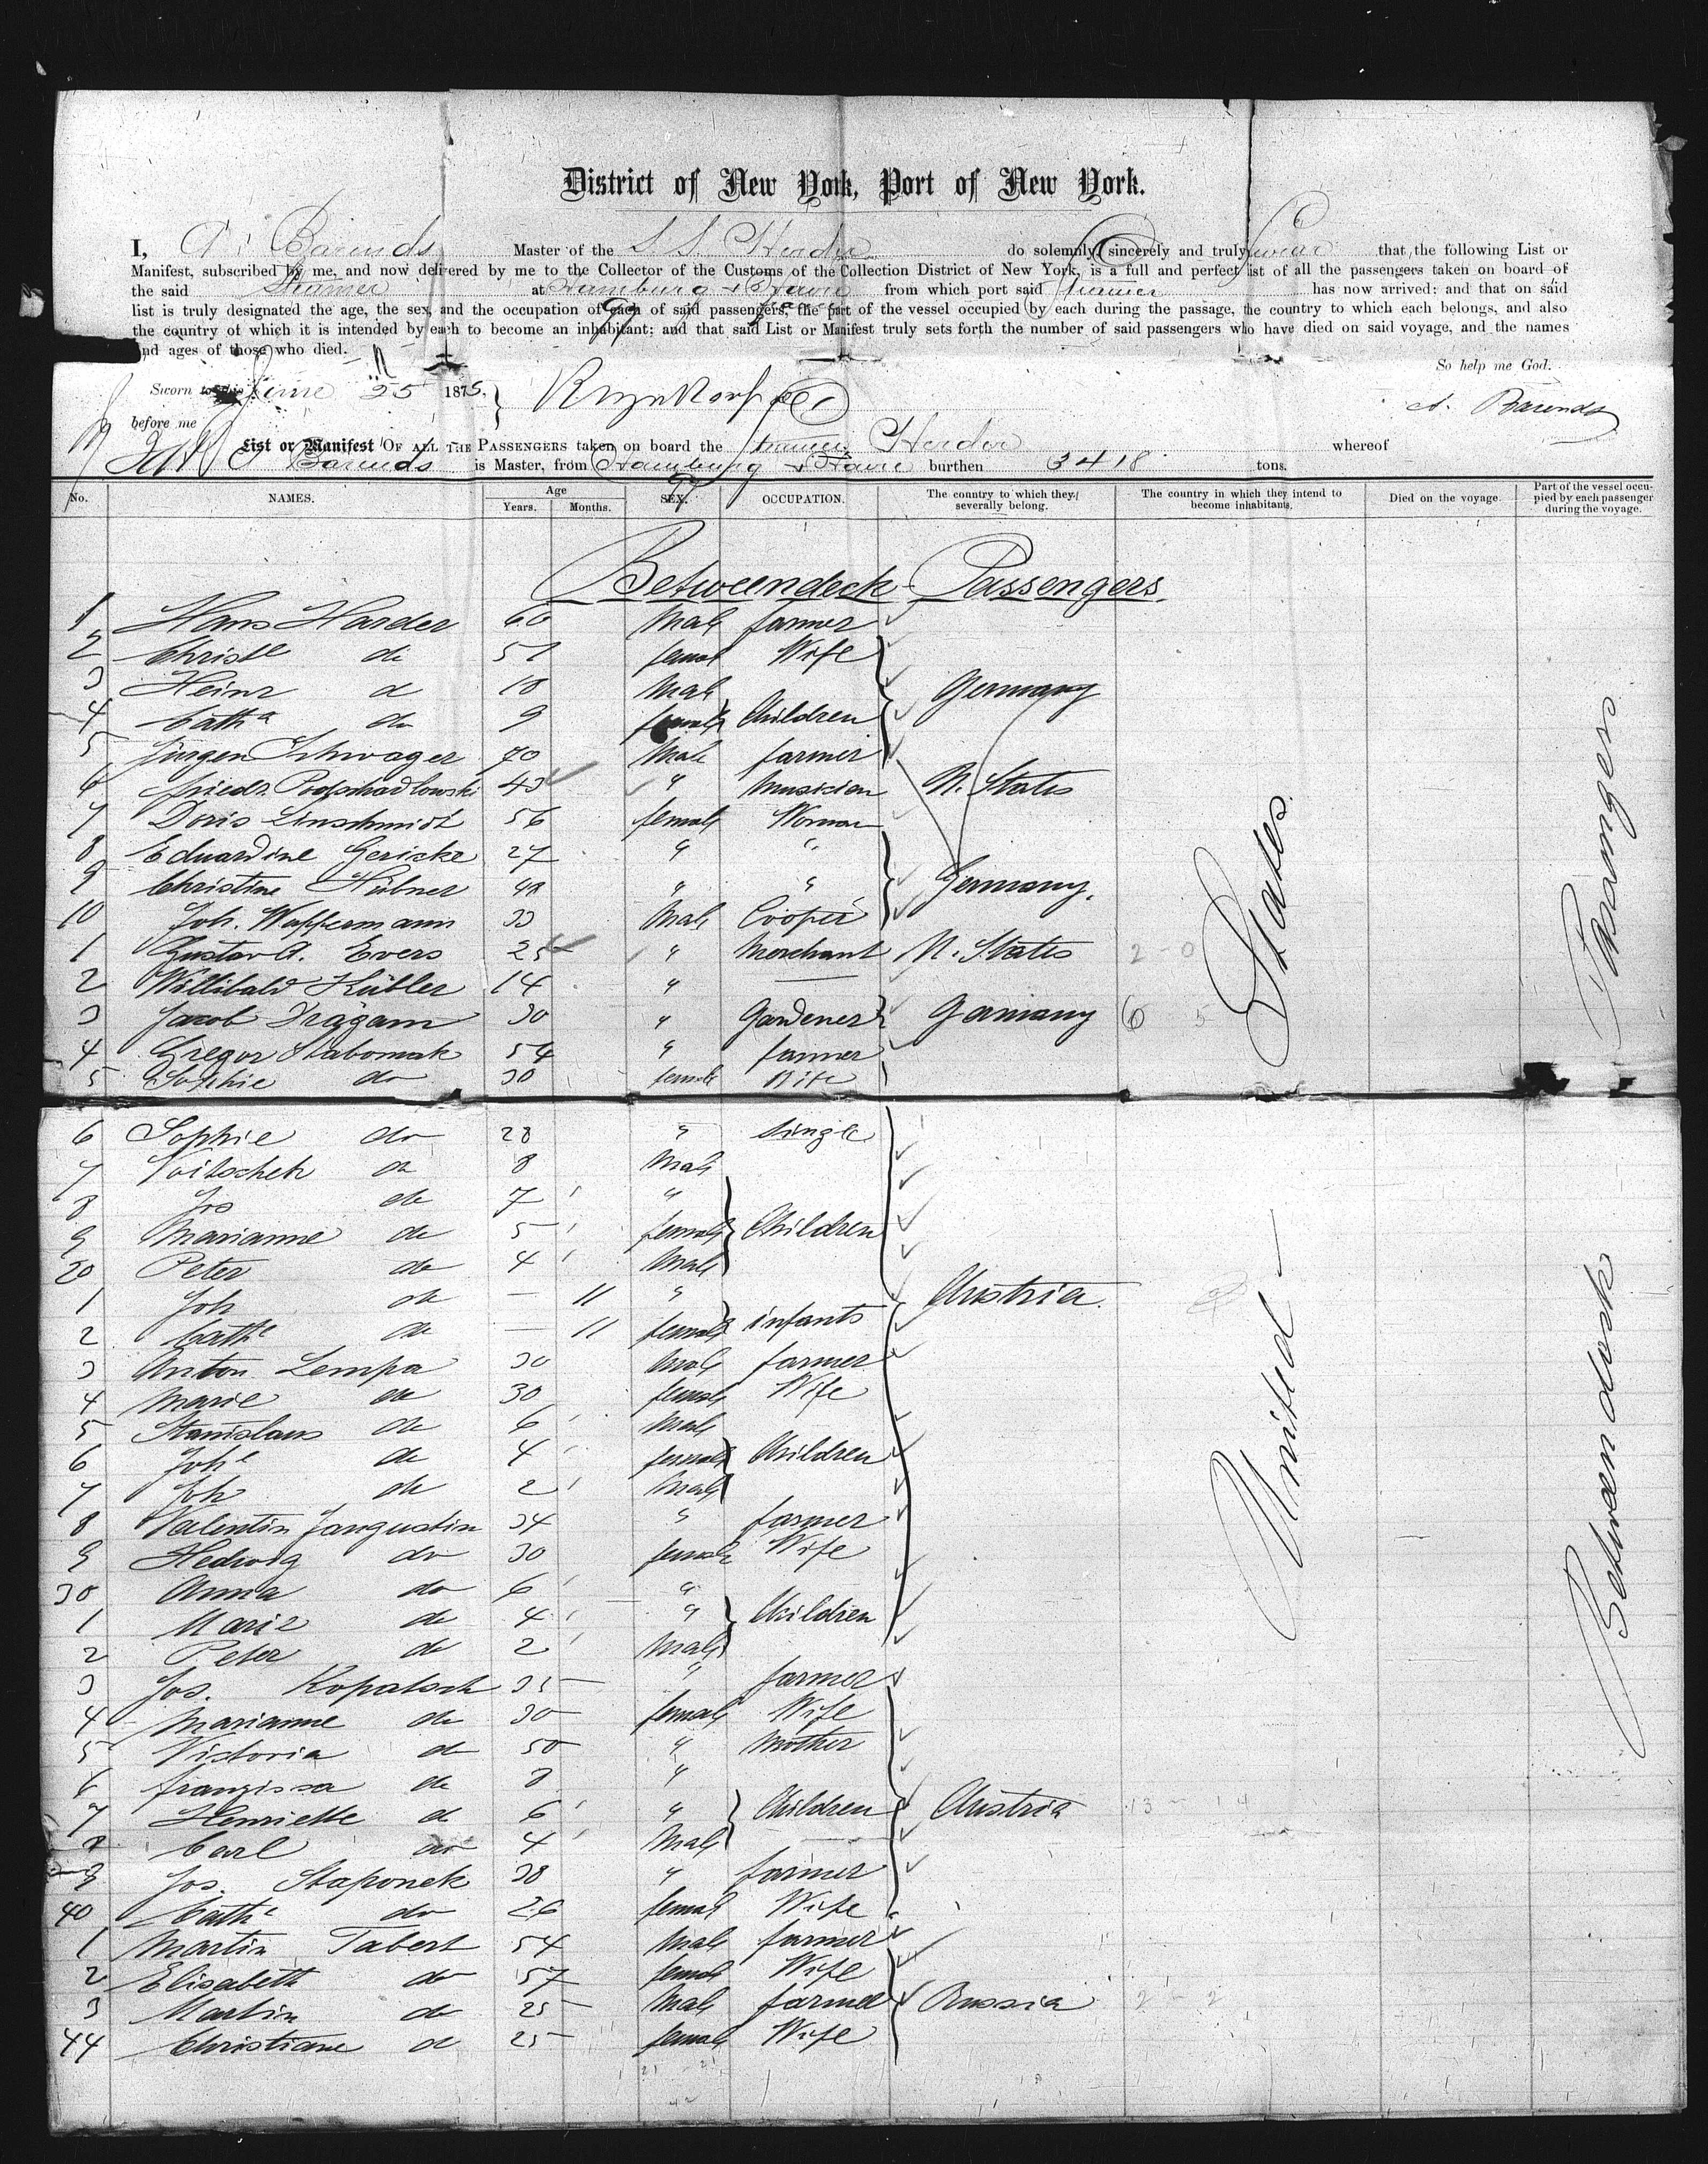 District of New York, Port of New York.
I, A. Barends Master of the S. S. Herder do solemnly, sincerely and truly swear that the following List or
Manifest, subscribed by me, and now delivered by me to the Collector of the Customs of the Collection District of New York, is a full and perfect list of all the passengers taken on board of
the said Steamer at Hamburg & Havre from which port said Steamer has now arrived: and that on said
list is truly designated the age, the sex, and the occupation of each of said passengers, the part of the vessel occupied by each during the passage, the country to which each belongs, and also
the country of which it is intended by each to become an inhabitant; and that said List or Manifest truly sets forth the number of said passengers who have died on said voyage, and the names
and ages of those who died.
So help me God.
Sworn to this June 25 1875,
A. Barends
before me
List or Manifest OF ALL THE PASSENGERS taken on board the Steamer Herder whereof
Barends is Master, from Hamburg & Havre burthen 3418 tons.
No. NAMES. Age Years. Months. SEX. OCCUPATION. The country to which they severally belong. The country in which they intend to become inhabitants. Died on the voyage. Part of the vessel occupied by each passenger during the voyage.
Betweendeck Passengers.
1 Hans Harder 60 Male farmer
2 Christe do 51 femal Wife
3 Heinr d 18 Male Germany
4 Catha do 9 female Children
5 Jürgen Schwager 70 Male farmer
6 friedr. Podschadlowski 43 " Musician U. States
7 Doris Linschmidt 56 female Woman
8 Eduardine Gericke 27 " "
9 Christine Hübner 48 " " Germany.
10 Joh. Wuppermann 33 Male Cooper
1 Gustav A. Evers 25 " Merchant U. States 2 - 0
2 Willibald Kübler 14 " —
3 Jacob Dragam 30 " Gardener Germany 6 5
4 Gregor Stabomak 54 " farmer
5 Sophie do 30 female Wife
6 Sophie do 28 " single
7 Voitschek do 8 Male
8 Jos do 7 "
9 Marianne do 5 female Children
20 Peter do 4 Male
1 Joh do — 11 " Austria.
2 Cathe do — 11 female infants
3 Anton Lempa 30 Male farmer
4 Marie do 30 female Wife
5 Stanislaus do 6 Male
6 Johe do 4 female Children
7 Joh do 2 Male
8 Valentin Jangustin 34 " farmer
9 Hedwig do 30 female Wife
30 Anna do 6 "
1 Marie do 4 " Children
2 Peter do 2 Male
3 Jos. Kopatsch 35 " farmer
4 Marianne do 30 female Wife
5 Victoria do 50 " Mother
6 franzissa do 8 "
7 Henriette do 6 " Children Austria 13 - 14
8 Carl do 4 Male
9 Jos. Staponek 38 " farmer
40 Cathe do 26 female Wife
1 Martin Tabert 54 Male farmer
2 Elisabeth do 57 female Wife
3 Martin do 25 Male farmer Russia 2 - 2
44 Christiane d 25 female Wife
United States
Betweendeck Passengers